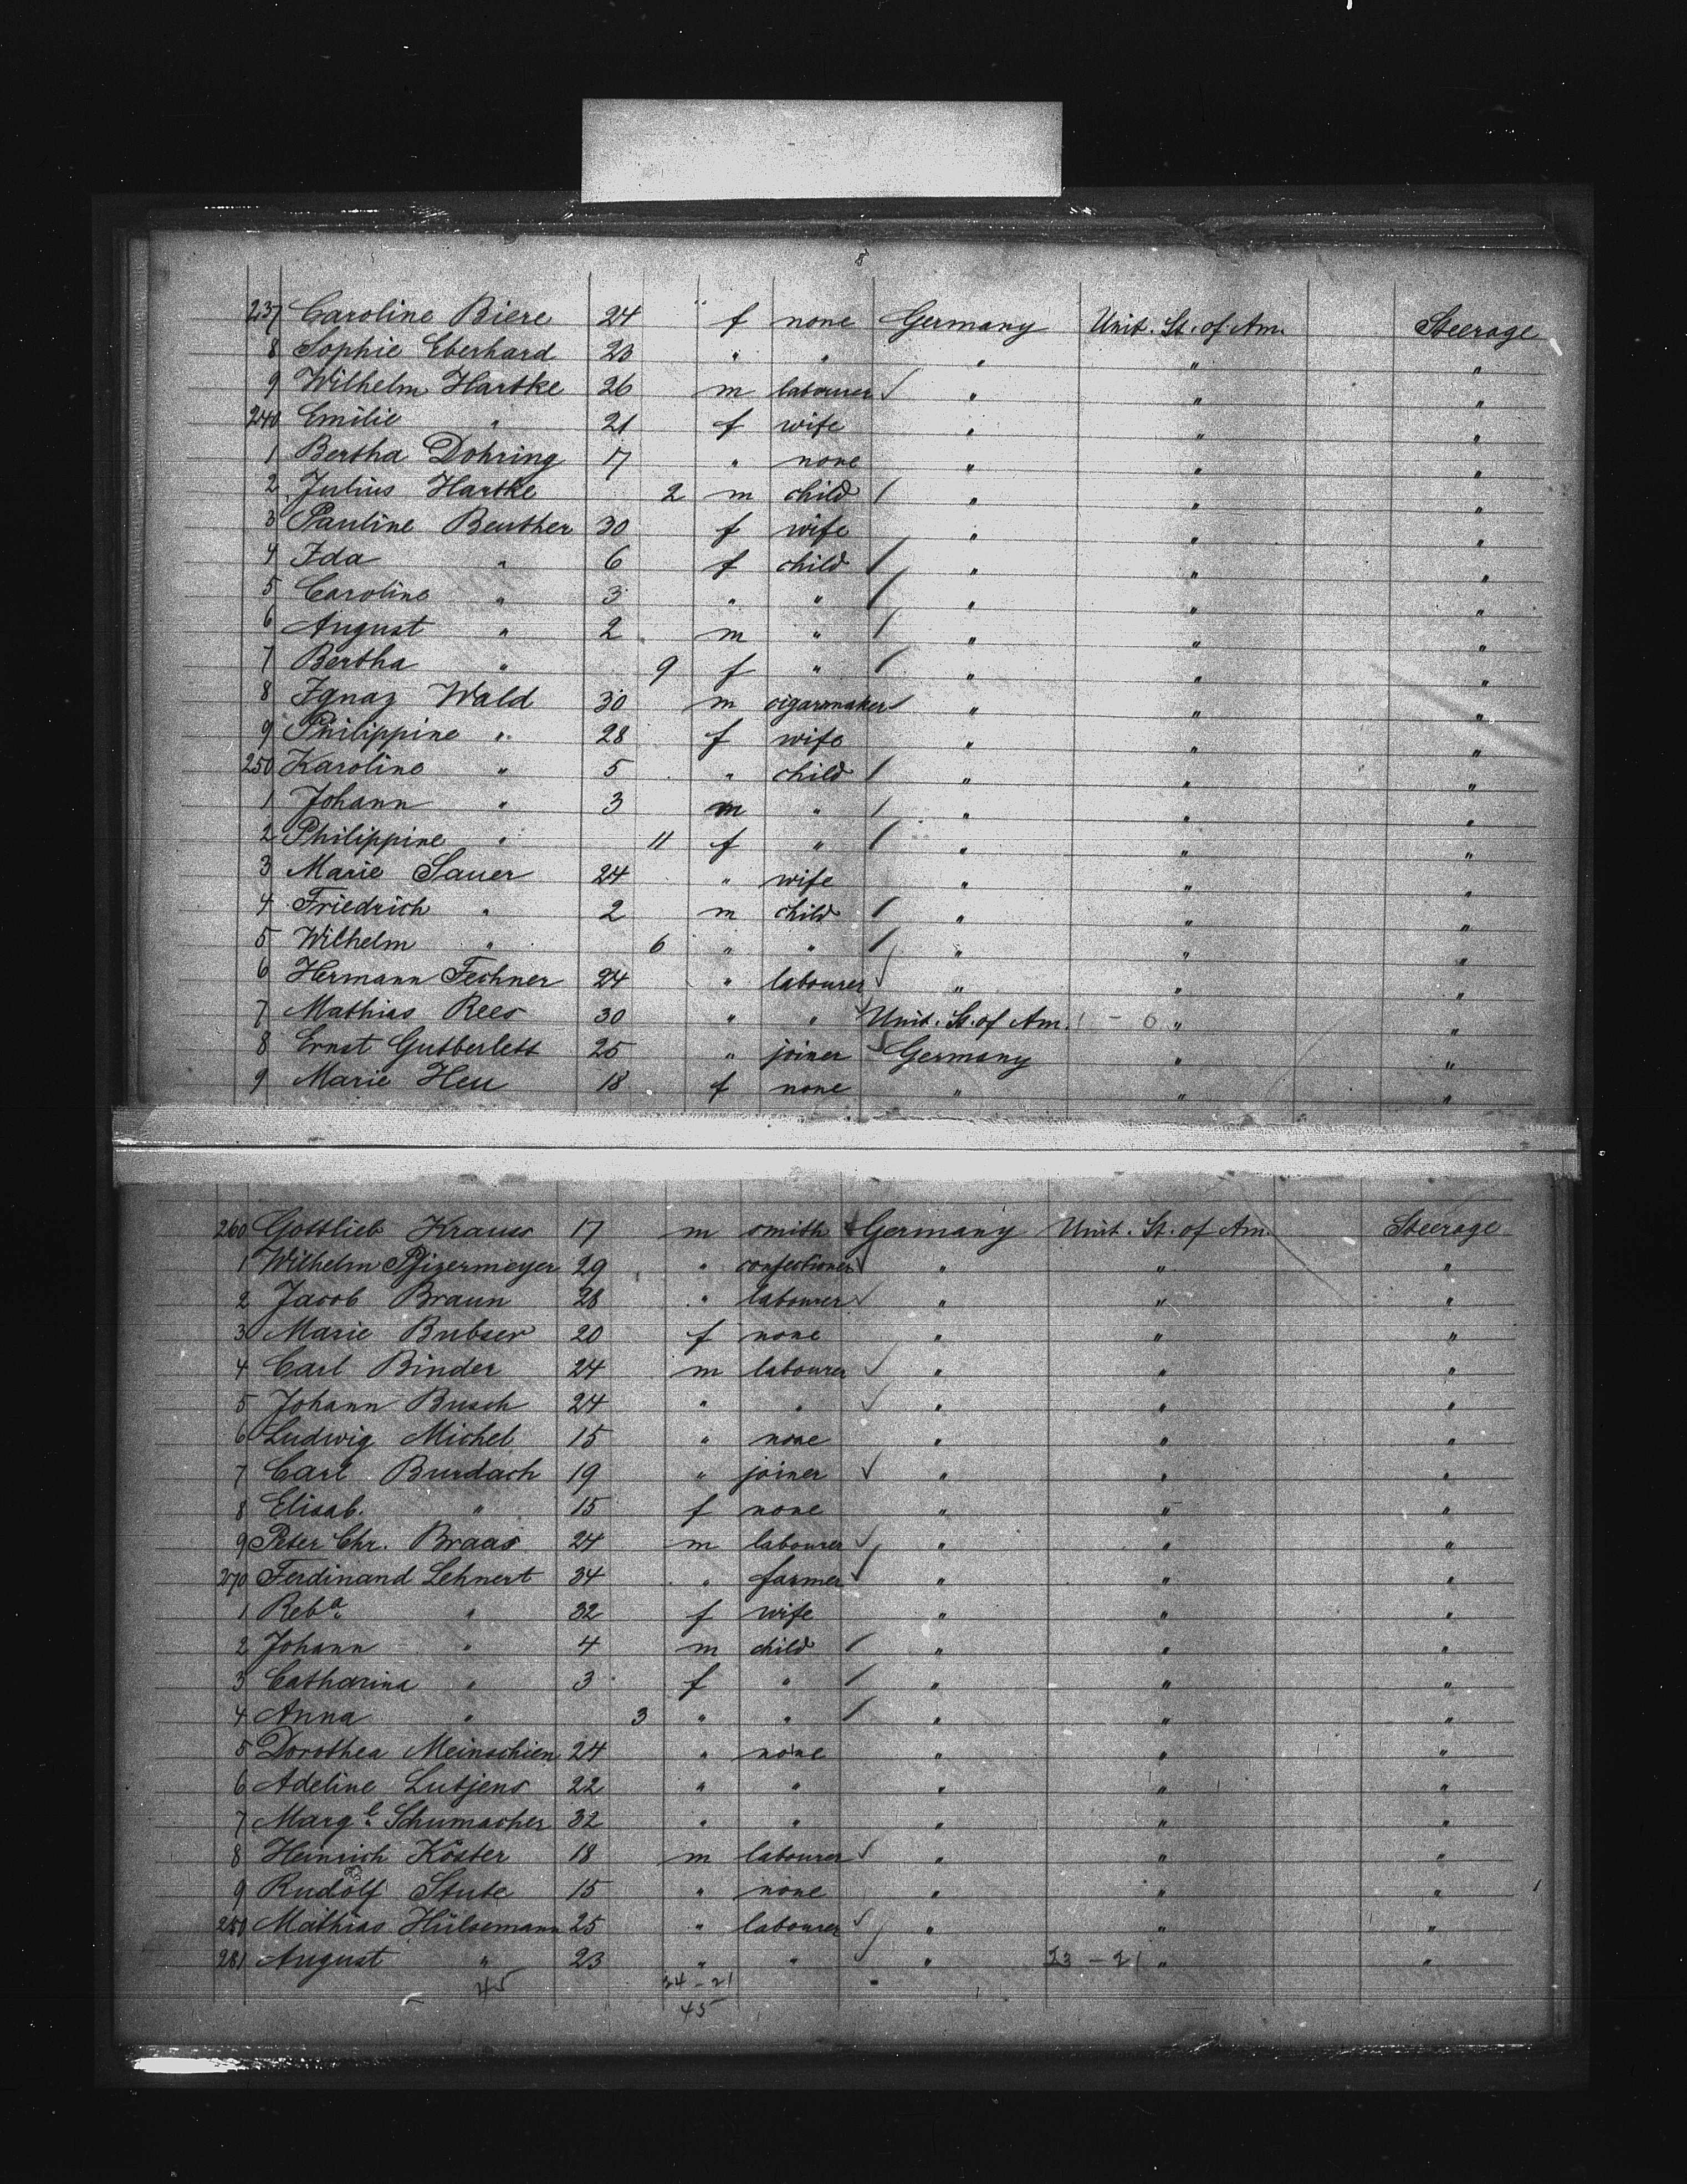 8
237 Caroline Biere 24 " f none Germany Unit. St. of Am. Steerage
8 Sophie Eberhard 23 " " " " "
9 Wilhelm Hartke 26 m labourer " " "
240 Emilie " 21 f wife " " "
1 Bertha Dohring 17 " none " " "
2 Julius Hartke 2 m child " " "
3 Pauline Beuther 30 f wife " " "
4 Ida " 6 f child " " "
5 Caroline " 3 " " " " "
6 August " 2 m " " " "
7 Bertha " 9 f " " " "
8 Ignaz Wald 30 m cigarmaker " " "
9 Philippine " 28 f wife " " "
250 Karoline " 5 " child " " "
1 Johann " 3 m " " " "
2 Philippine " 11 f " " " "
3 Marie Sauer 24 " wife " " "
4 Friedrich " 2 m child " " "
5 Wilhelm " 6 " " " " "
6 Hermann Fechner 24 " labourer " " "
7 Mathias Rees 30 " " Unit. St. of Am. 1 - 0 " "
8 Ernst Gutberlett 25 " joiner Germany " "
9 Marie Heu 18 f none " " "
260 Gottlieb Krauss 17 m smith Germany Unit. St. of Am. Steerage
1 Wilhelm Pfizermeyer 29 " confectioner " " "
2 Jacob Braun 28 " labourer " " "
3 Marie Bubser 20 f none " " "
4 Carl Binder 24 m labourer " " "
5 Johann Busch 24 " " " " "
6 Ludwig Michel 15 " none " " "
7 Carl Burdach 19 " joiner " " "
8 Elisab. " 15 f none " " "
9 Peter Chr. Braas 24 m labourer " " "
270 Ferdinand Lehnert 34 " farmer " " "
1 Reba " 32 f wife " " "
2 Johann " 4 m child " " "
3 Catharina " 3 f " " " "
4 Anna " 3 " " " " "
5 Dorothea Meinschien 24 " none " " "
6 Adeline Lutjens 22 " " " " "
7 Marg. Schumacher 32 " " " " "
8 Heinrich Köster 18 m labourer " " "
9 Rudolf Stute 15 " none " " "
280 Mathias Hülsemann 25 " labourer " " "
281 August " 23 " " " 23 - 21 " "
45 24 - 21
45